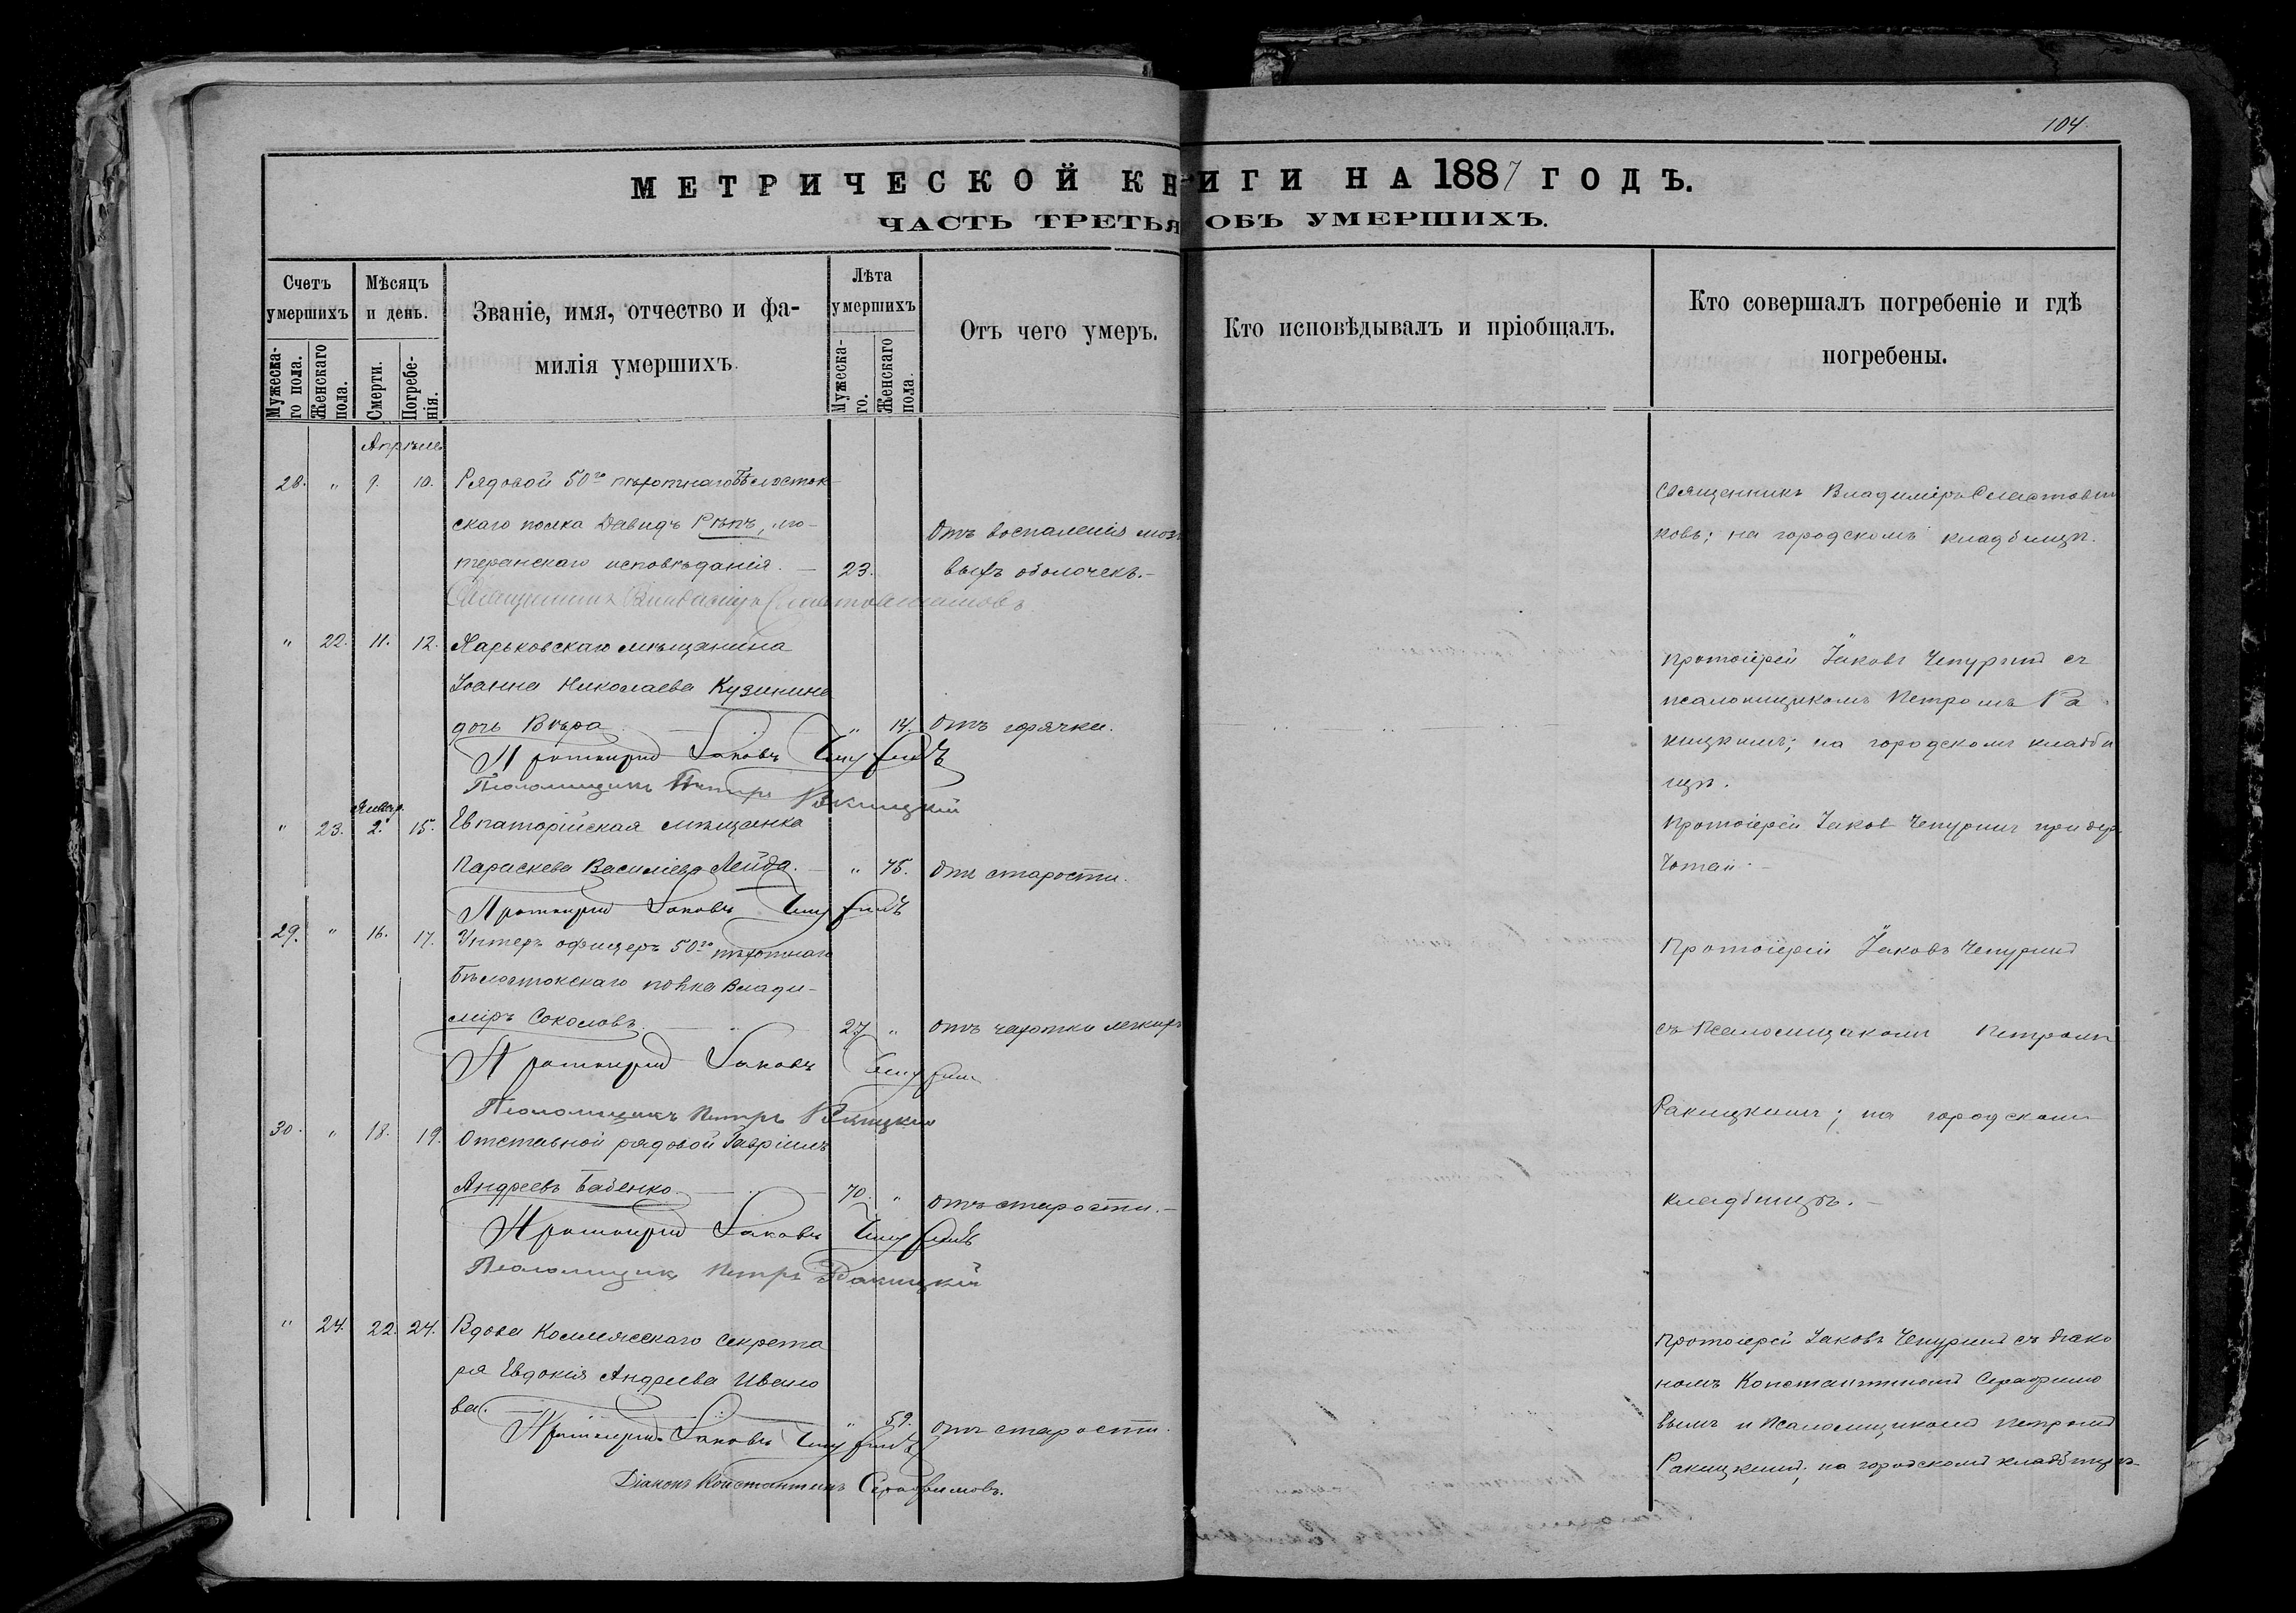 104.
МЕТРИЧЕСКОЙ КНИГИ НА 1887 ГОДЪ.
ЧАСТЬ ТРЕТЬЯ ОБЪ УМЕРШИХЪ.
Счетъ умершихъ
Мужеска-го пола.
Женскаго пола.
Мѣсяцъ и день.
Смерти.
Погребе-нія.
Званіе, имя, отчество и фа-
милія умершихъ.
Лѣта умершихъ
Мужеска-го.
Женскаго пола.
Отъ чего умеръ.
Кто исповѣдывалъ и пріобщалъ.
Кто совершалъ погребеніе и гдѣ
погребены.
Апрѣль
28. " 9. 10. Рядовой 50го пѣхотнаго Бѣлосток-
скаго полка Давидъ Рѣпъ, лю-
теранскаго исповѣданія. — 23.
Отъ воспаленія моз
выхъ оболочекъ.—
Священникъ Владиміръ Сластовни
ковъ; на городскомъ кладбищѣ.
Священникъ Владиміръ Сластовниковъ
" 22. 11. 12. Харьковскаго мѣщанина
Іоанна Николаева Кузинина
дочь Вѣра " 14. Отъ горячки.
Протоіерей Іаковъ Чепуринъ
Псаломщикъ Петръ Ракицкій
Протоіерей Іаковъ Чепуринъ съ
псаломщикомъ Петромъ Ра
кицкимъ; на городскомъ кладби
щѣ.
Январ.
" 23. 2. 15. Евпаторійская мѣщанка
Параскева Василіева Лейда. — " 75. Отъ старости.
Протоіерей Іаковъ Чепуринъ
Протоіерей Іаковъ Чепуринъ при дер.
29. " 16. 17. Унтеръ офицеръ 50го пѣхотнаго
Бѣлостокскаго полка Влади-
міръ Соколовъ. 27 " Отъ чахотки легкихъ
Протоіерей Іаковъ Чепурин
Псаломщикъ Петръ Ракицкій
Протоіерей Іаковъ Чепуринъ
съ Псаломщикомъ Петромъ
Ракицкимъ; на городскомъ
кладбищѣ.—
30. " 18. 19. Отставной рядовой Гавріилъ
Андреевъ Бабенко. 70. " Отъ старости.—
Протоіерей Іаковъ Чепуринъ
Псаломщикъ Петръ Ракицкій
" 24. 22. 24. Вдова Коллежскаго Секрета
ря Евдокія Андреева Ивано
ва. " 59. Отъ старости.
Протоіерей Іаковъ Чепуринъ
Діаконъ Константинъ Серафимовъ.
Протоіерей Іаковъ Чепуринъ съ діако
номъ Константиномъ Серафимо
вымъ и Псаломщикомъ Петромъ
Ракицкимъ; на городскомъ кладбищѣ